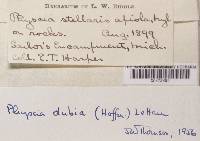 HERBARIUM OF L. W. RIDDLE
Physcia stellaris apiola, Nyl
on rocks. Aug. 1899
Sailor's Encampment, Mich.
Coll. E. T. Harper
Physcia dubia (Hoffm.) Lettau
JW Thomson, 1956